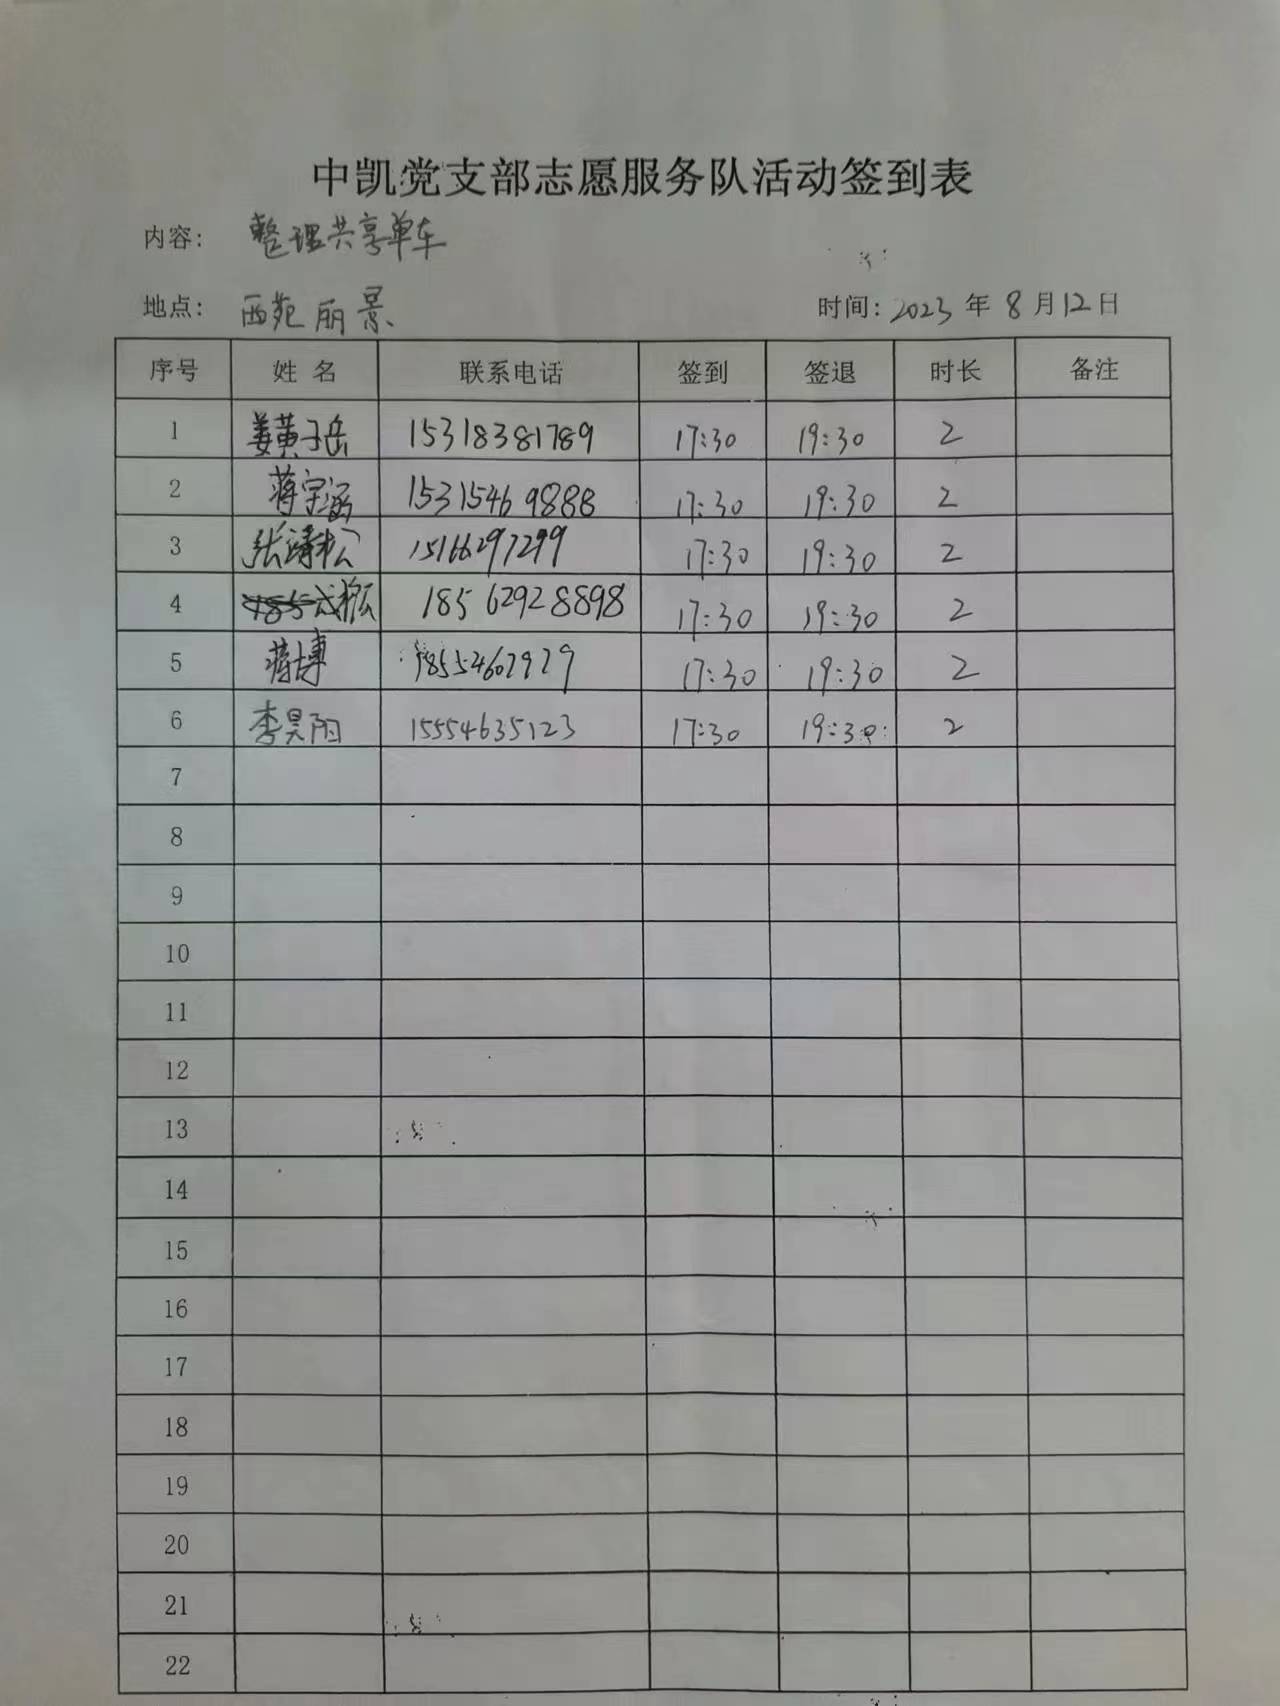 中凯党支部志愿服务队活动签到表
内容: 整理共享单车
地点: 西苑丽景 时间: 2023 年 8 月 12 日
序号 姓名 联系电话 签到 签退 时长 备注
1 姜黄子岳 15318381789 17:30 19:30 2
2 蒋宇涵 15315469888 17:30 19:30 2
3 张清松 15166297299 17:30 19:30 2
4 18562928898 17:30 19:30 2
5 蒋博 18554602929 17:30 19:30 2
6 李昊阳 15554635123 17:30 19:30 2
7
8
9
10
11
12
13
14
15
16
17
18
19
20
21
22